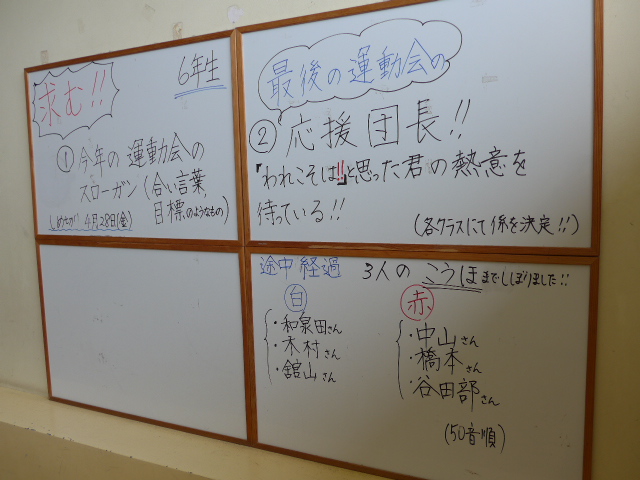 求む!!
6年生
① 今年の運動会の
スローガン(合い言葉,
目標,のようなもの)
しめきり 4月28日(金)
最後の運動会の
② 応援団長!!
「われこそは!!」と思った君の熱意を
待っている!!
(各クラスにて係を決定!!)
途中経過 3人の こうほまでしぼりました!!
白
・和泉田さん
・木村さん
・舘山さん
赤
・中山さん
・橋本さん
・谷田部さん
(50音順)